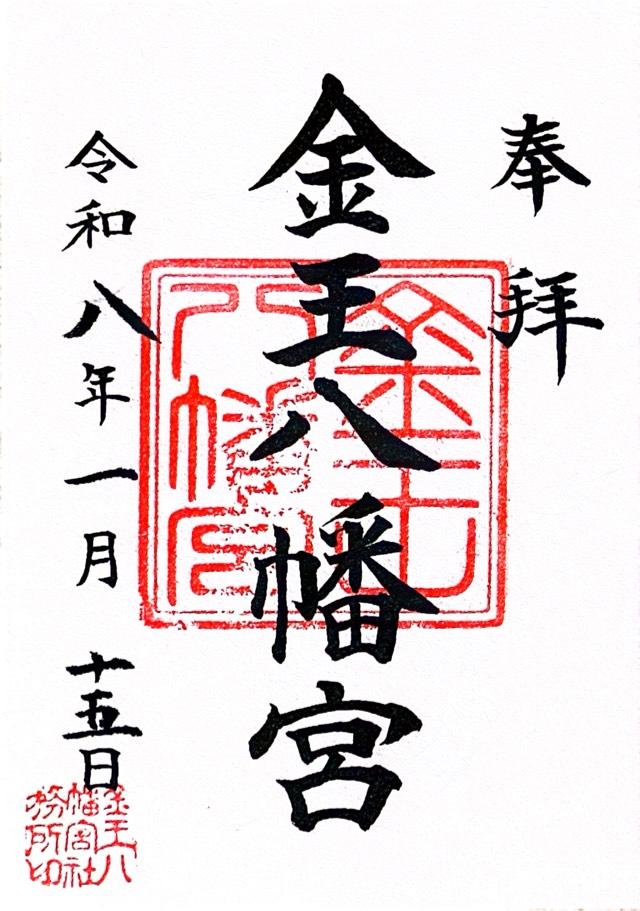 奉拝
金王八幡宮
令和八年一月十五日
金王八
幡宮社
務所印